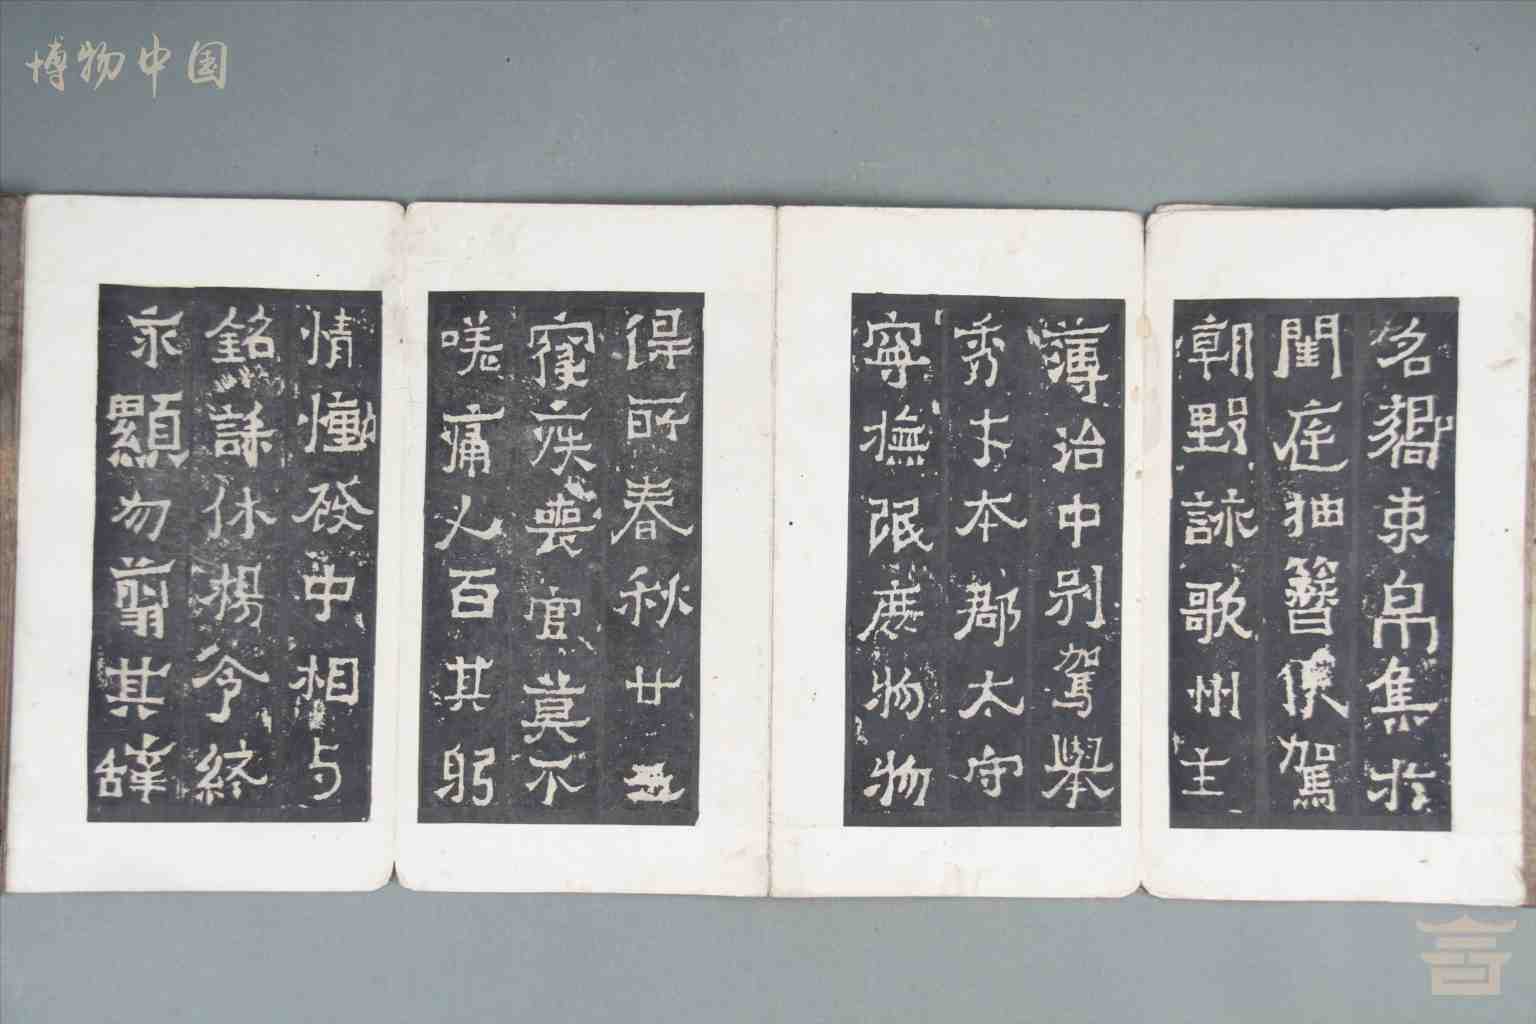 博物中国
名響束帛集於
閨庭抽簪俟駕
朝野詠歌州主
薄治中别駕舉
秀才本郡太守
寧撫氓庶物物
得所春秋廿五
寢疾喪官莫不
嗟痛人百其躬
情慟發中相与
銘誄休揚令終
永顯勿翦其辭